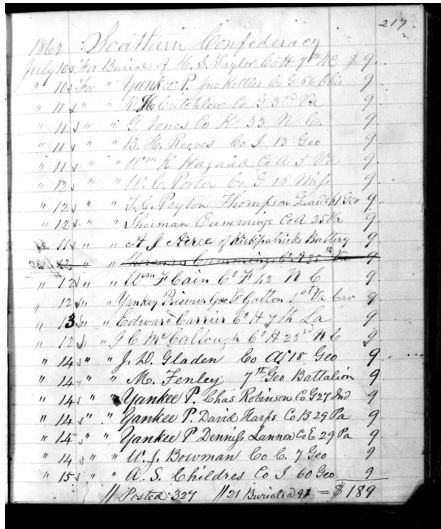 217
1862 Southern Confederacy
July 10 For Burial of H. S. Taylor Co H 7th NC $ 9.
" 10 For " Yankee P. Jno Kettles Co G 66 Ohio 9
" 11 " " H Critchlow Co G 3rd Va 9
" 11 " " G. Jones Co K 33 N. C. 9
" 11 " " B. H. Reeves Co I 13 Geo 9
" 11 " " Wm K Hazard Co A 5 Va 9
" 13 " " W. C. Porter Co G 16 Miss 9
" 12 " " Peyton Thompson Geo 9
" 12 " " Sherman Cummings Co A 25 Va 9
" 11 " " A J Acree of Kirkpatricks Battery 9
" 12 " " Wm F Cain Co F 42 N C 9
" 12 " Yankey Prisoner Geo Galton 1st Va Cav 9
" 13 " Edward Carrier Co H 7th La 9
" 12 " J C McCallough Co H 23rd N C 9
" 14 " " J. D. Gladen Co A 18 Geo 9
" 14 " " M. Fenley 7th Geo Battalion 9
" 14 " " Yankee P. Chas Robinson Co G 27 Ind 9
" 14 " " Yankee P. David Harps Co B 29 Pa 9
" 14 " " Yankee P Dennis Lannon Co E 29 Pa 9
" 14 " " W. J. Bowman Co C. 7 Geo 9
" 15 " " A. S. Childres Co I 60 Geo 9
// Posted 327 // 21 Burials @ 9 = $ 189